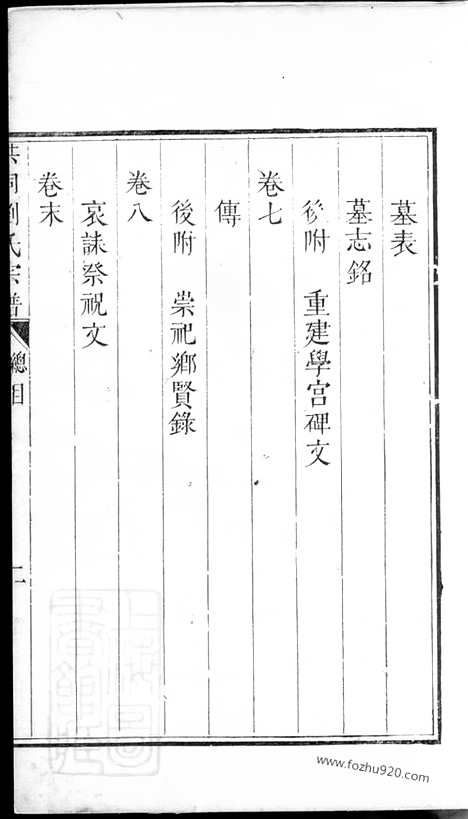 墓表
墓志銘
後附　重建學宫碑文
卷七
傳
後附　崇祀鄉賢錄
卷八
哀誄祭祝文
卷末
洪洞劉氏宗譜
總目
二
www.fozhu920.com